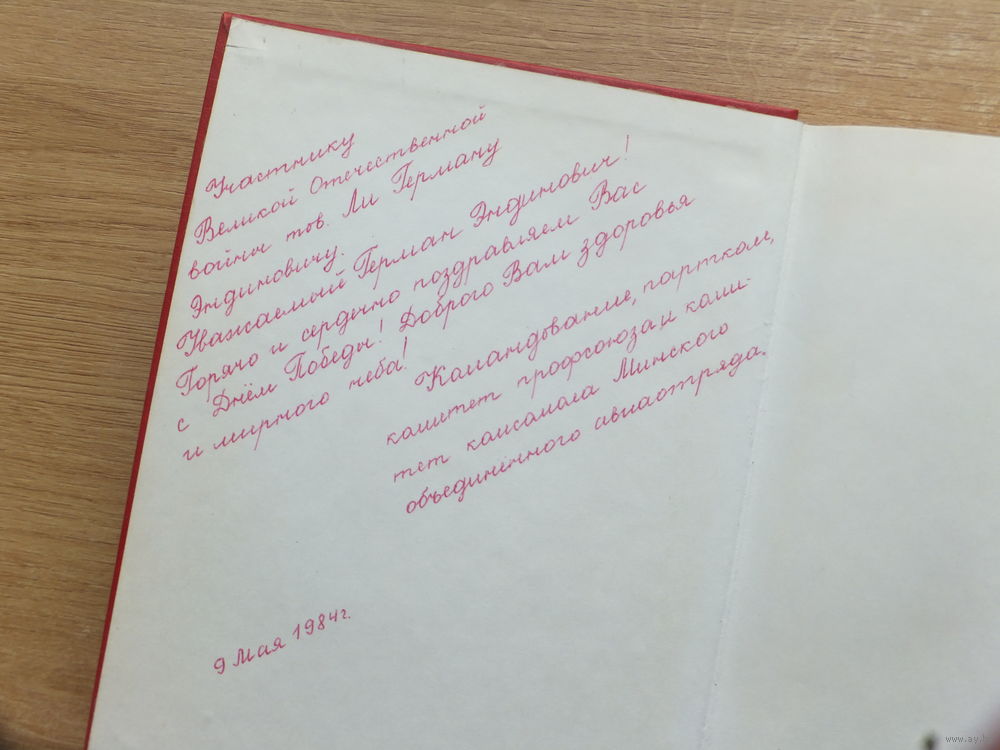 Участнику
Великой Отечественной
войны тов. Ли Герману
Эндиновичу.
Уважаемый Герман Эндинович!
Горячо и сердечно поздравляем Вас
с Днём Победы! Доброго Вам здоровья
и мирного неба!
Командование, партком,
комитет профсоюза и коми-
тет комсомола Минского
объединённого авиаотряда.
9 Мая 1984г.